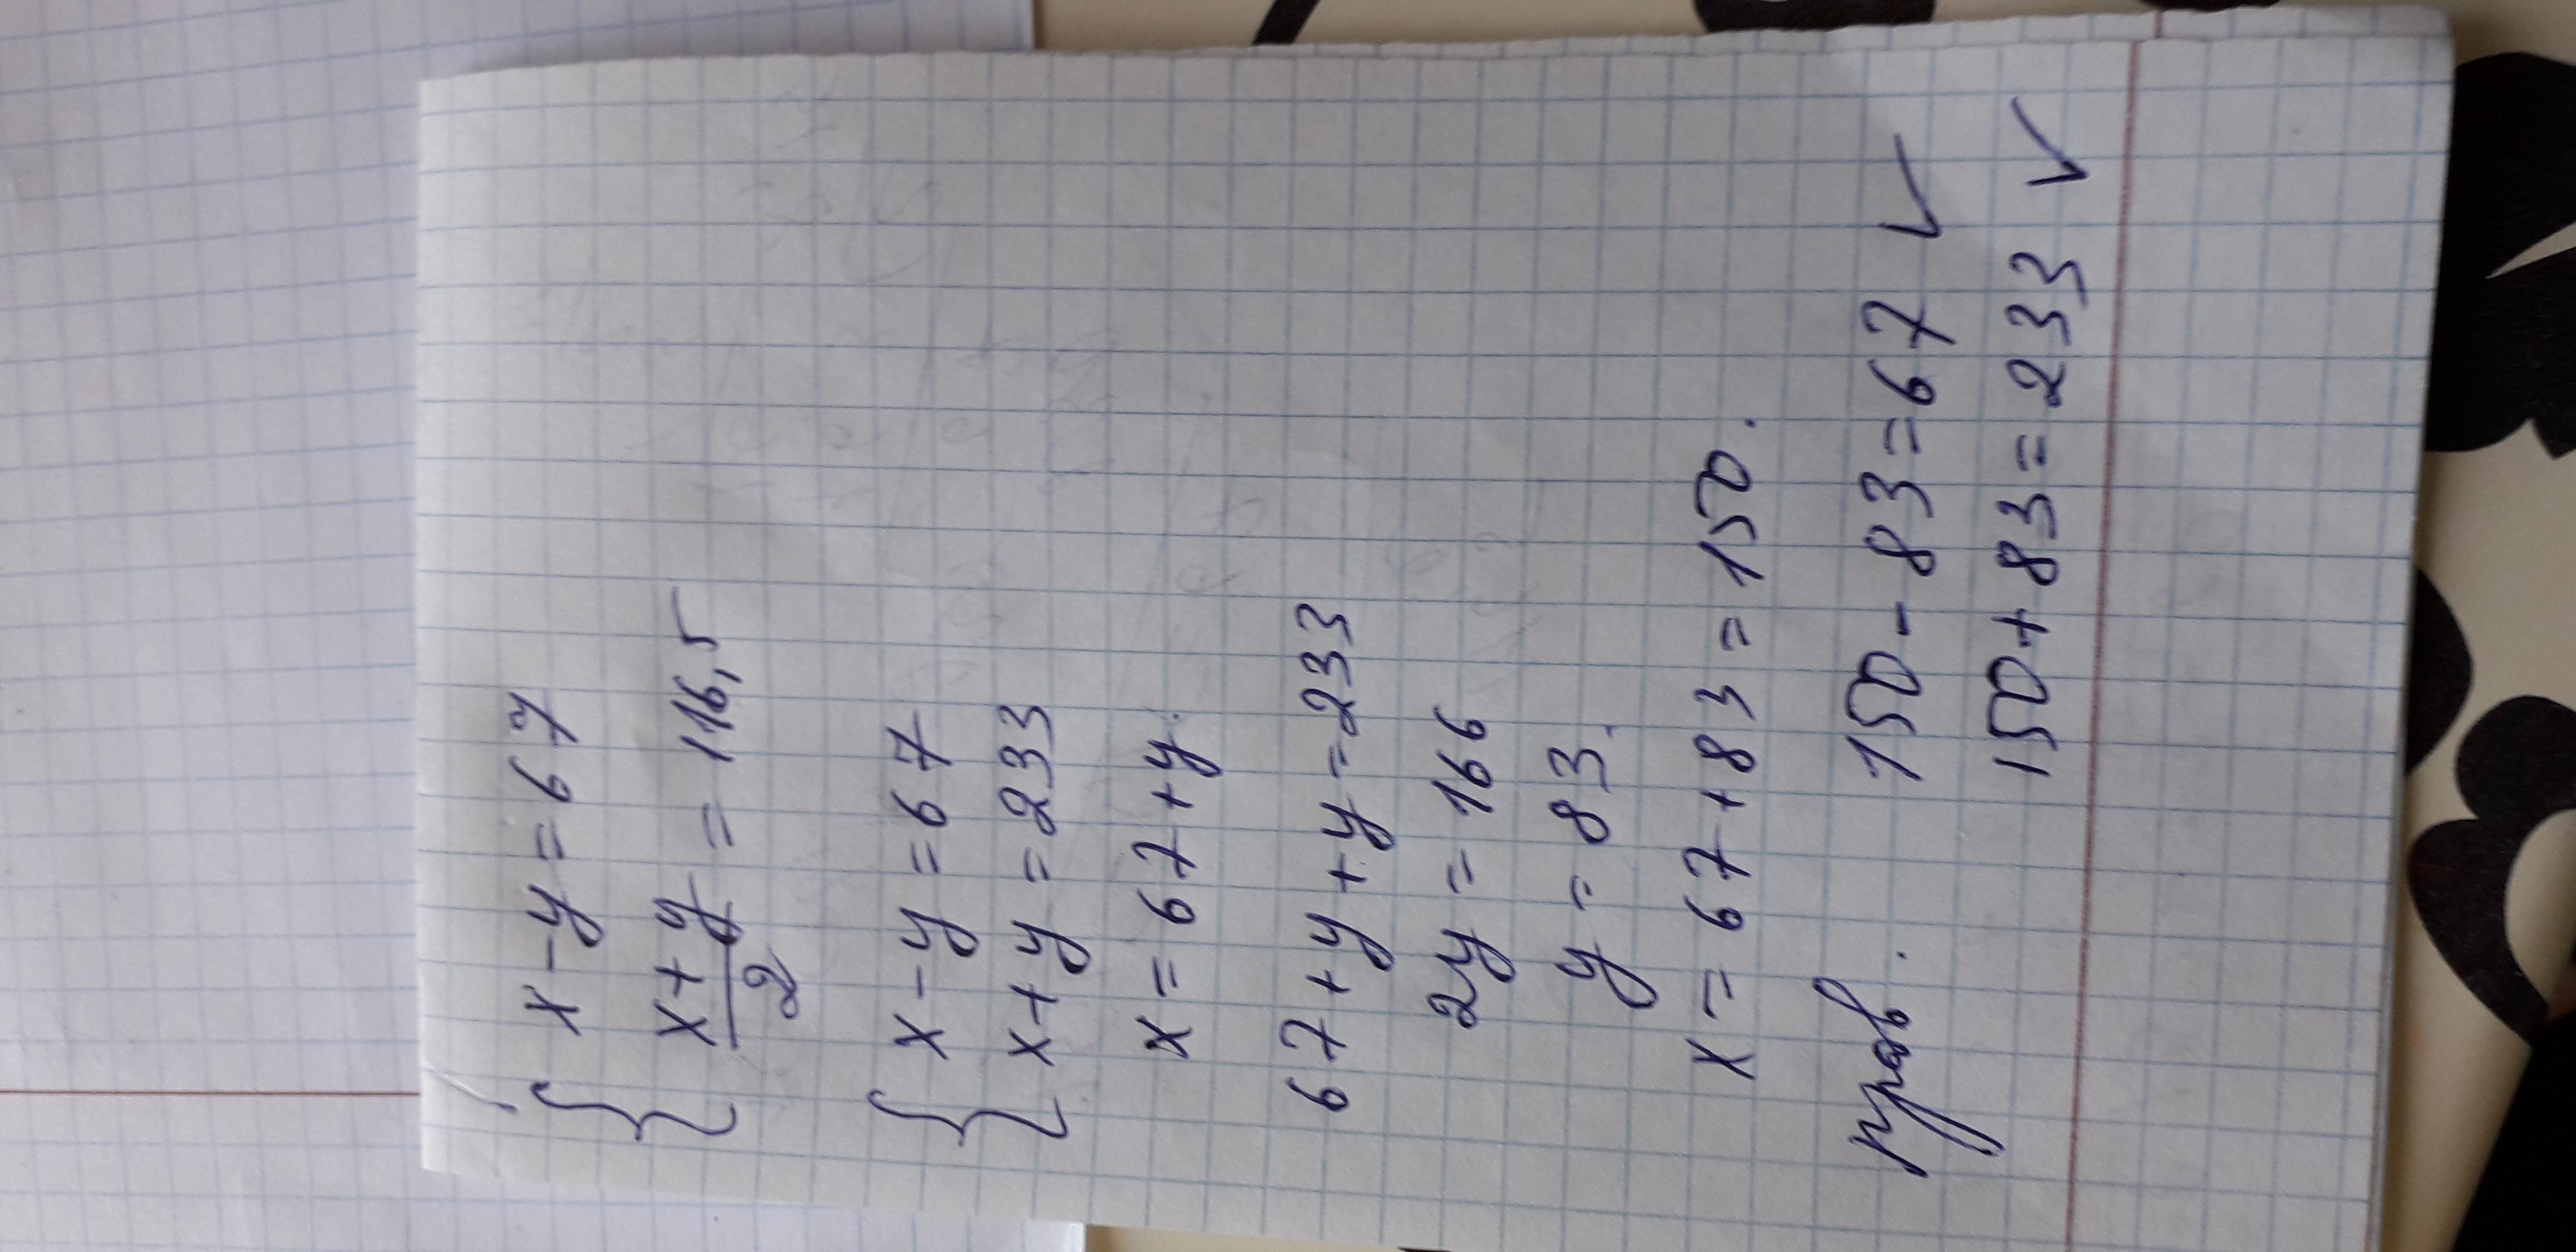 x - y = 67
x + y
2
= 116,5
x - y = 67
x + y = 233
x = 67 + y.
67 + y + y = 233
2y = 166
y = 83.
x = 67 + 83 = 150.
пров. 150 - 83 = 67 ✓
150 + 83 = 233 ✓